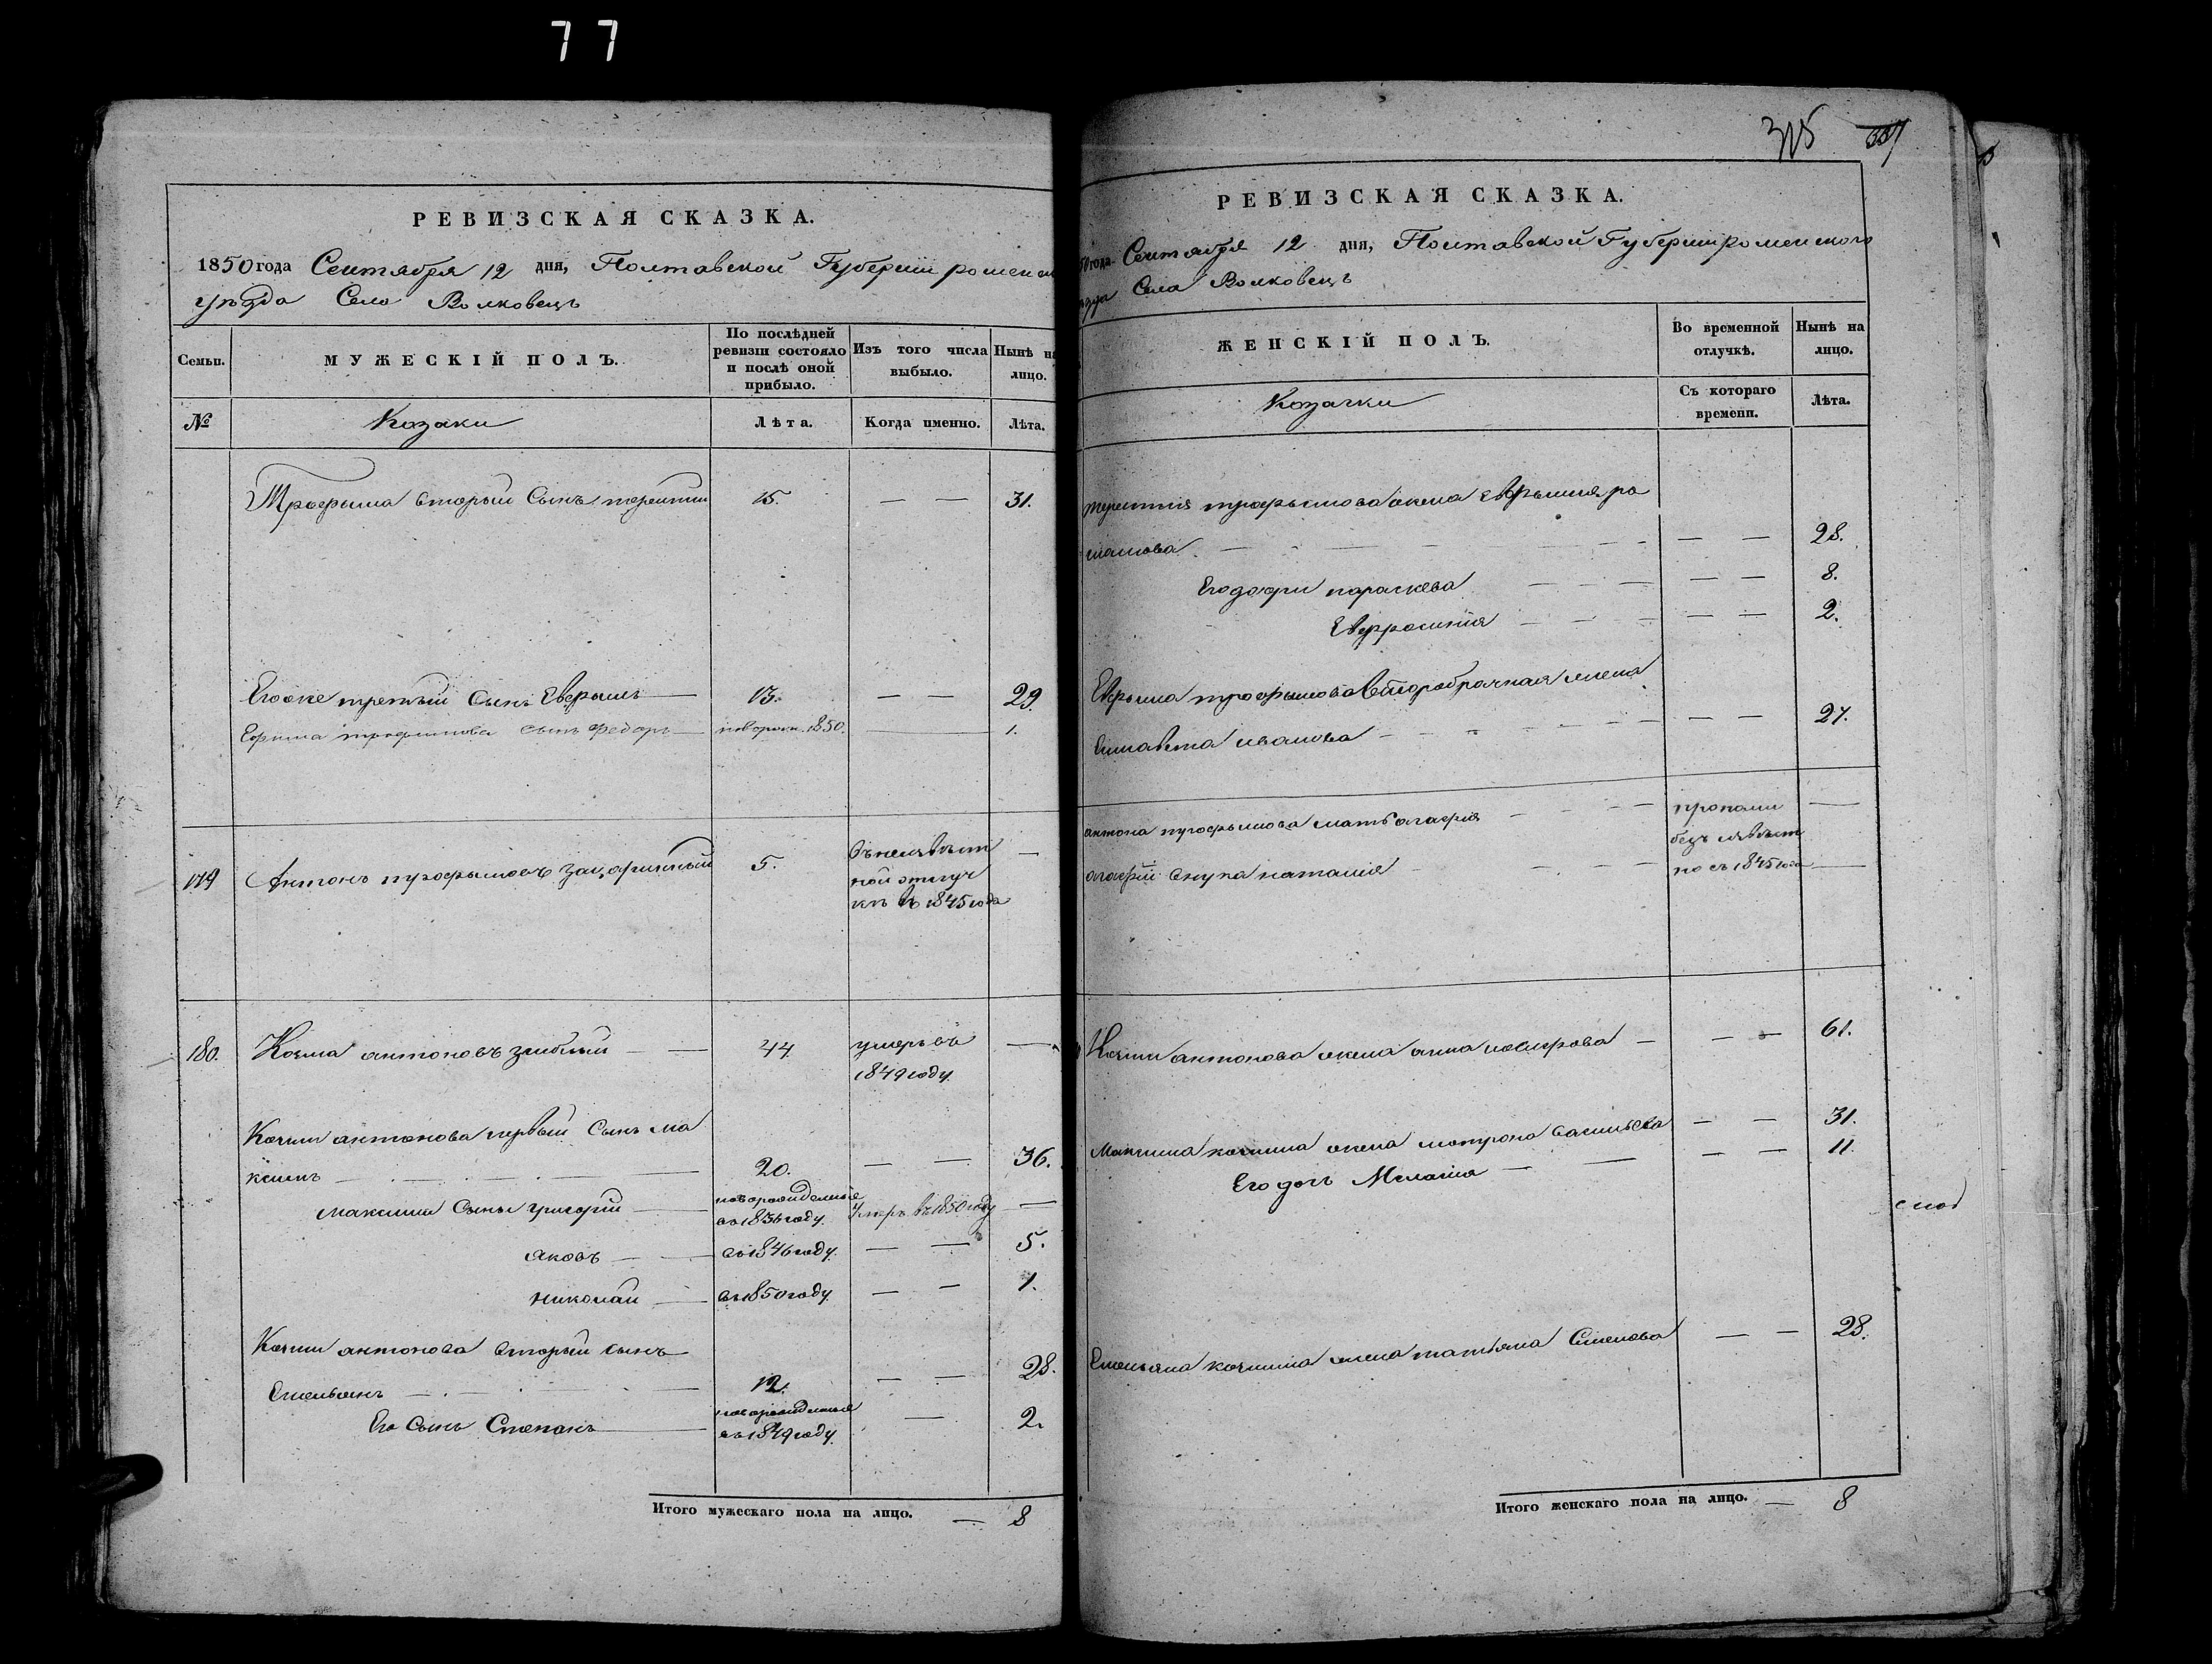 77
РЕВИЗСКАЯ СКАЗКА.
1850 года Сентября 12 дня, Полтавской Губернии роменск
уезда Села Волковецъ
Семьи.
МУЖЕСКІЙ ПОЛЪ.
По послѣдней
ревизіи состояло
и послѣ оной
прибыло.
Изъ того числа
выбыло.
Нынѣ на
лицо.
№
Козаки
Лѣта.
Когда именно.
Лѣта.
Трофыма вторый Сынъ терентий 15. — — 31.
Егоже третый Сынъ Евфымъ 13. — — 29.
Ефима трофимова сынъ Федоръ новорож. 1850. — 1.
179 Антонъ трофымовъ 5. —
въ неизвѣст
ной отлуч
кѣ съ 1845 года
180. Козма антоновъ 44 умеръ въ —
1849 году
Козми антонова первый Сынъ ма
ксимъ 20. — — 36.
новорожденный
максима Сыны григорий въ 1836 году. Умръ въ 1850 году —
яковъ въ 1846 году. — — 5.
николай въ 1850 году — — 1.
Козми антонова вторый сынъ
Емельянъ 12. — — 28.
новорожденный
Его Сынъ Степанъ въ 1849 году. — 2.
Итого мужескаго пола на лицо. — 8
315 337
РЕВИЗСКАЯ СКАЗКА.
50 года Сентября 12 дня, Полтавской Губернии роменского
езда Села Волковецъ
ЖЕНСКІЙ ПОЛЪ.
Во временной
отлучкѣ.
Нынѣ на
лицо.
Козачки
Съ котораго
времени.
Лѣта.
терентия трофымова жена Евфымия ро
манова — — 28.
Его дочри параскева — — 8.
Евфросиния — — 2.
Евфыма трофымова второбрачная жена
Елисавета иванова — — 27.
антона трофымова мать агафия пропали —
безъ извѣст
агафии снука наталия но съ 1845 года —
Козми антонова жена анна — — 61.
Максима козмина жена мотрона васильева — — 31.
Его дочь Мелания — — 11.
Емельяна козмина жена татьяна Семенова — — 28.
Итого женскаго пола на лицо. — 8